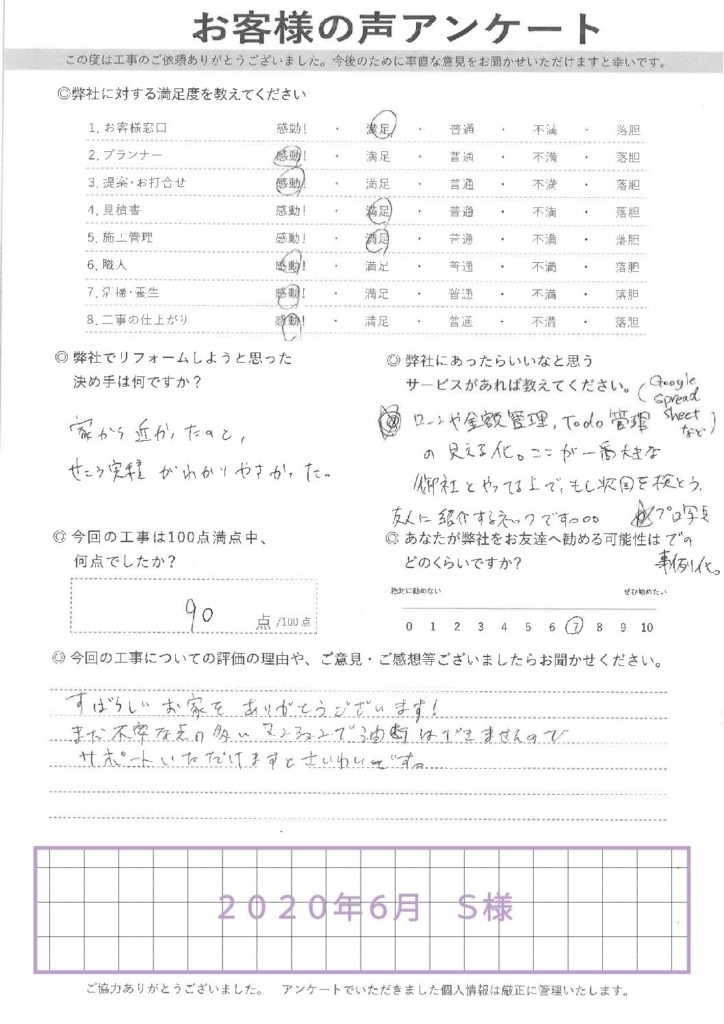 お客様の声アンケート
この度は工事のご依頼ありがとうございました。今後のために率直な意見をお聞かせいただけますと幸いです。
◎弊社に対する満足度を教えてください
1. お客様窓口 感動! ・ 満足 ・ 普通 ・ 不満 ・ 落胆
2. プランナー 感動! ・ 満足 ・ 普通 ・ 不満 ・ 落胆
3. 提案・お打合せ 感動! ・ 満足 ・ 普通 ・ 不満 ・ 落胆
4. 見積書 感動! ・ 満足 ・ 普通 ・ 不満 ・ 落胆
5. 施工管理 感動! ・ 満足 ・ 普通 ・ 不満 ・ 落胆
6. 職人 感動! ・ 満足 ・ 普通 ・ 不満 ・ 落胆
7. 清掃・養生 感動! ・ 満足 ・ 普通 ・ 不満 ・ 落胆
8. 工事の仕上がり 感動! ・ 満足 ・ 普通 ・ 不満 ・ 落胆
◎ 弊社でリフォームしようと思った
決め手は何ですか？
家から近かったのと、
せこう実積がわかりやすかった。
◎ 弊社にあったらいいなと思う
サービスがあれば教えてください。
(Google
spread
sheet
など)
ローンや金額管理, Todo管理
の見える化。ここが一番大きな
御社とやってる上で、もし改図を検とう、
友人に紹介するネックです。。。
プロ写真
での
事例化。
◎ 今回の工事は100点満点中、
何点でしたか？
90 点 /100点
◎ あなたが弊社をお友達へ勧める可能性は
どのくらいですか？
絶対に勧めない ぜひ勧めたい
0 1 2 3 4 5 6 7 8 9 10
◎ 今回の工事についての評価の理由や、ご意見・ご感想等ございましたらお聞かせください。
すばらしいお家をありがとうございます!
まだ不安な点の多いマンションで油断はできませんので
サポートいただけますとさいわいです。
2020年6月 S様
ご協力ありがとうございました。 アンケートでいただきました個人情報は厳正に管理いたします。